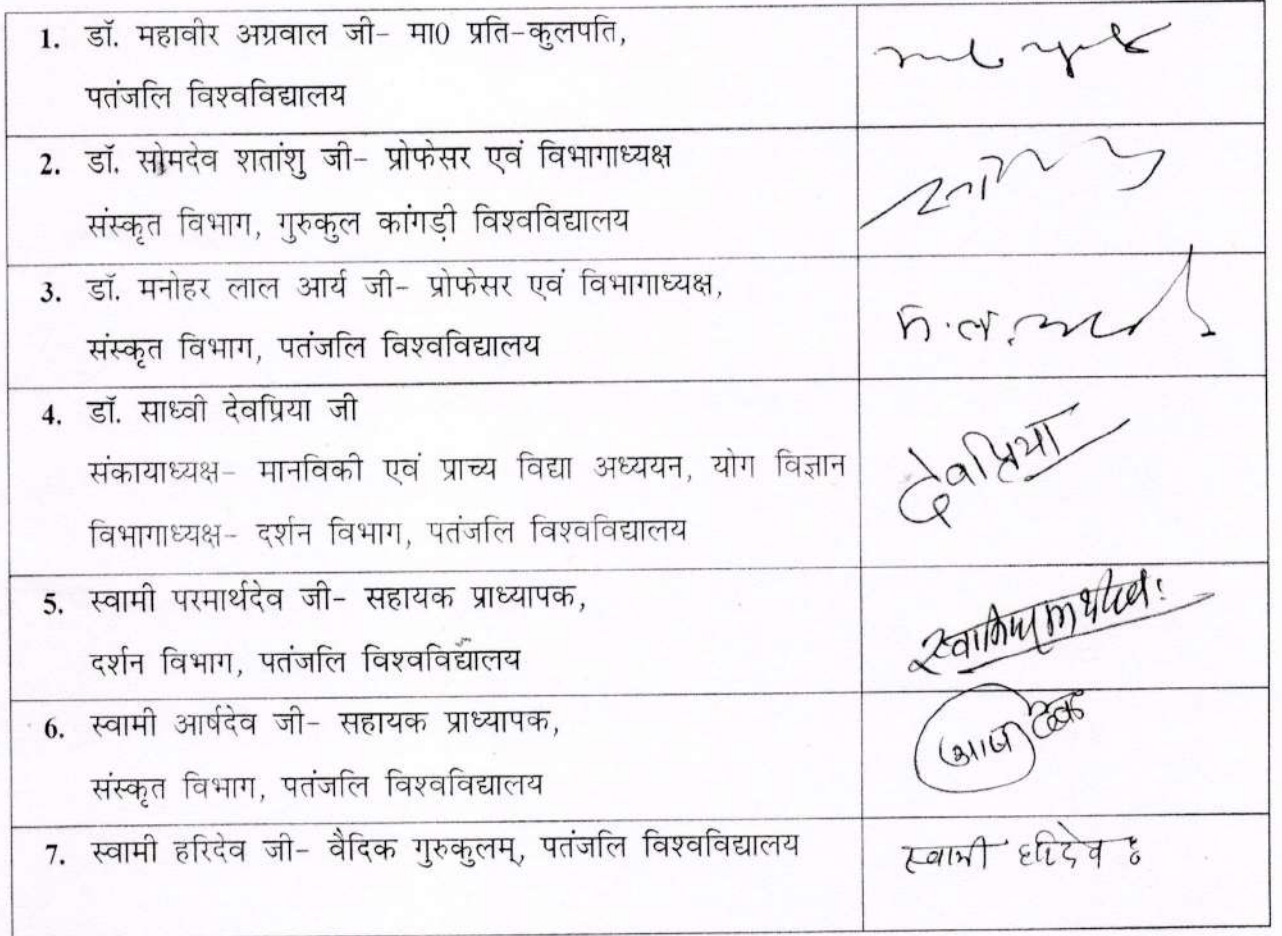 1. डॉ. महावीर अग्रवाल जी- मा0 प्रति-कुलपति,
पतंजलि विश्वविद्यालय
2. डॉ. सोमदेव शतांशु जी- प्रोफेसर एवं विभागाध्यक्ष
संस्कृत विभाग, गुरुकुल कांगड़ी विश्वविद्यालय
3. डॉ. मनोहर लाल आर्य जी- प्रोफेसर एवं विभागाध्यक्ष,
संस्कृत विभाग, पतंजलि विश्वविद्यालय
4. डॉ. साध्वी देवप्रिया जी
संकायाध्यक्ष- मानविकी एवं प्राच्य विद्या अध्ययन, योग विज्ञान
देवप्रिया
विभागाध्यक्ष- दर्शन विभाग, पतंजलि विश्वविद्यालय
5. स्वामी परमार्थदेव जी- सहायक प्राध्यापक,
दर्शन विभाग, पतंजलि विश्वविद्यालय
6. स्वामी आर्षदेव जी- सहायक प्राध्यापक,
संस्कृत विभाग, पतंजलि विश्वविद्यालय
7. स्वामी हरिदेव जी- वैदिक गुरुकुलम्, पतंजलि विश्वविद्यालय
स्वामी हरिदेवः